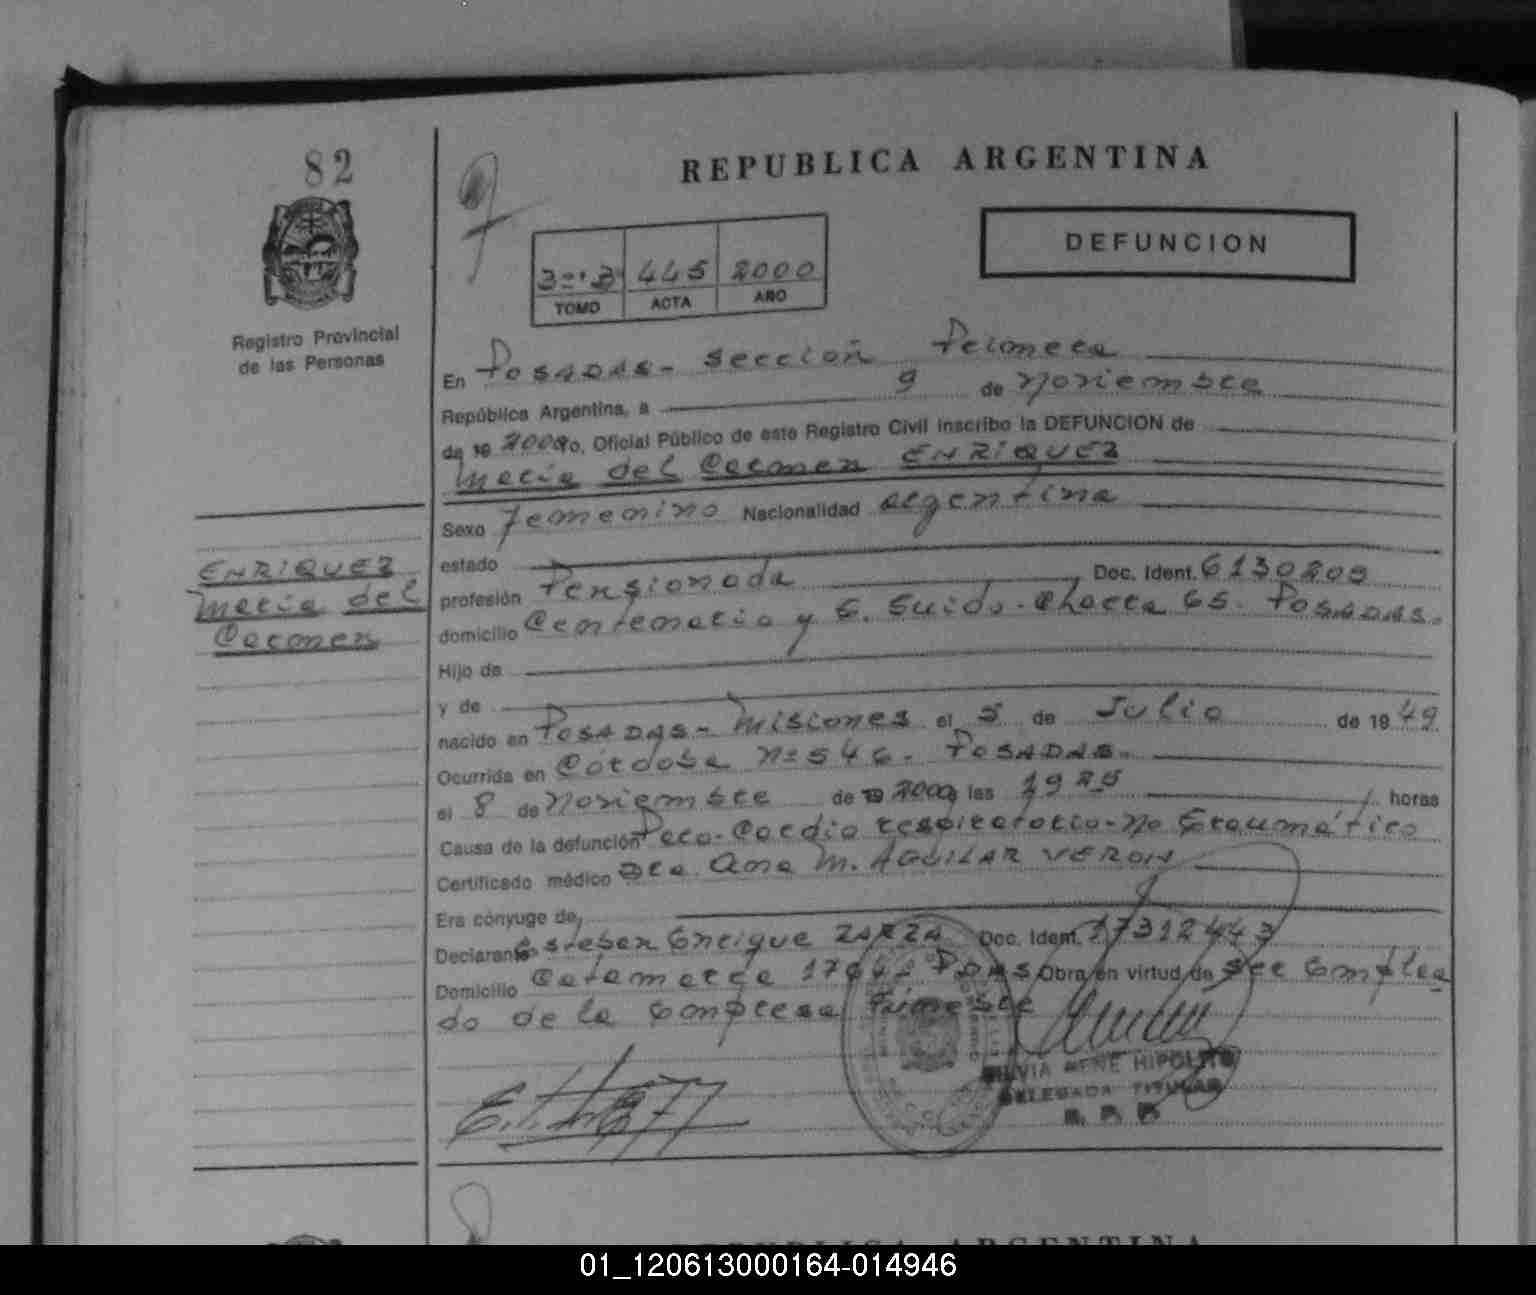 82
REPUBLICA ARGENTINA
DEFUNCION
3º.B 445 2000
TOMO ACTA AÑO
Registro Provincial
de las Personas
En POSADAS - Sección Primera
República Argentina, a 9 de Noviembre
de 19 2000 Yo, Oficial Público de este Registro Civil inscribo la DEFUNCION de
María del Carmen ENRIQUEZ
Sexo Femenino Nacionalidad argentina
estado
profesión Pensionada Doc. Ident. 6130205
domicilio Centenario y G. Guido - Chacra 65 - POSADAS.
Hijo de
y de
nacido en POSADAS - Misiones el 5 de Julio de 1949
Ocurrida en Córdoba Nº 546 - POSADAS.
el 8 de Noviembre de 19 2000 a las 1925 horas
Causa de la defunción Paro-Cardio respiratorio-No traumático
Certificado médico Dra. Ana M. AGUILAR VERON
Era cónyuge de
Declarante Esteban Enrique ZARZA Doc. Ident. 17312443
Domicilio Catamarca 1764 - Pdas Obra en virtud de ser emplea
do de la empresa fúnebre
SILVIA RENE HIPOLITO
DELEGADA TITULAR
R. P. P.
ENRIQUEZ
María del
Carmen
REPUBLICA ARGENTINA
01_120613000164-014946